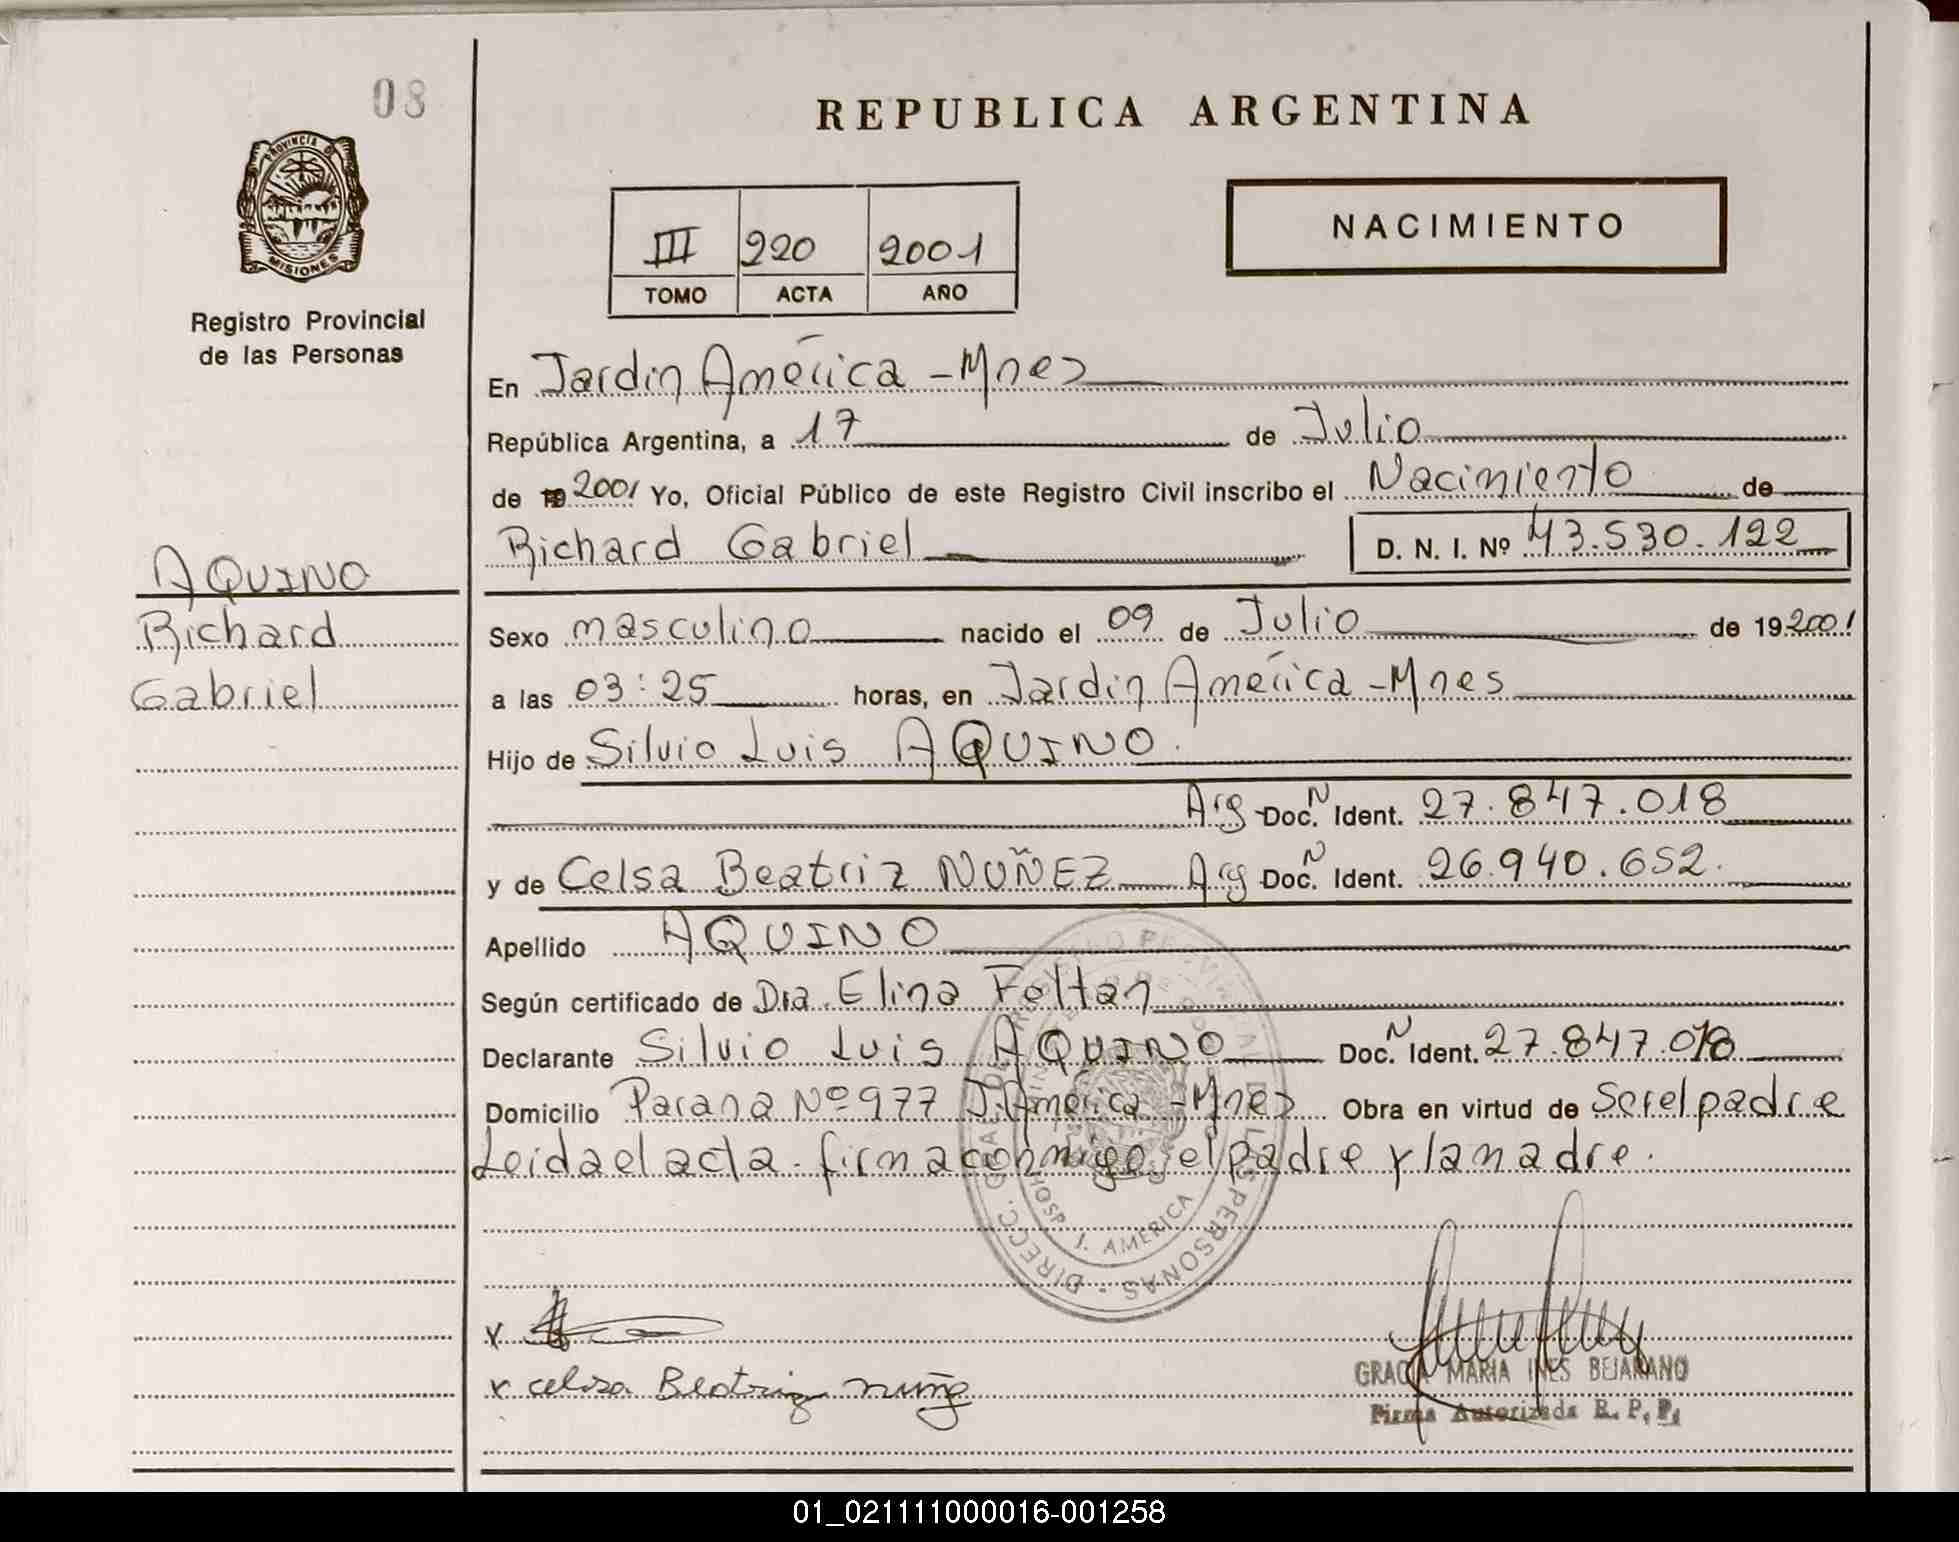 08
REPUBLICA ARGENTINA
PROVINCIA DE
MISIONES
Registro Provincial
de las Personas
III 220 2001
TOMO ACTA AÑO
NACIMIENTO
En Jardin América - Mnes
República Argentina, a 17 de Julio
de 19 2001 Yo, Oficial Público de este Registro Civil inscribo el Nacimiento de
Richard Gabriel D. N. I. Nº 43.530.122
AQUINO
Richard
Gabriel
Sexo masculino nacido el 09 de Julio de 19 2001
a las 03:25 horas, en Jardin América - Mnes
Hijo de Silvio Luis AQUINO.
Arg Doc. N Ident. 27.847.018
y de Celsa Beatriz NUÑEZ Arg Doc. N Ident. 26.940.652.
Apellido AQUINO
Según certificado de Dra. Elina Feltan
Declarante Silvio Luis AQUINO Doc. N Ident. 27.847.018
Domicilio Parana Nº 977 J. América - Mnes Obra en virtud de Ser el padre
Leida el acta. firma conmigo el padre y la madre.
DIRECC. GRAL. DEL REGISTRO PROVINCIAL DE LAS PERSONAS
HOSP. J. AMERICA
x
x celsa Beatriz nuñez
GRACIA MARIA INES BEJARANO
Firma Autorizada R. P. P.
01_021111000016-001258